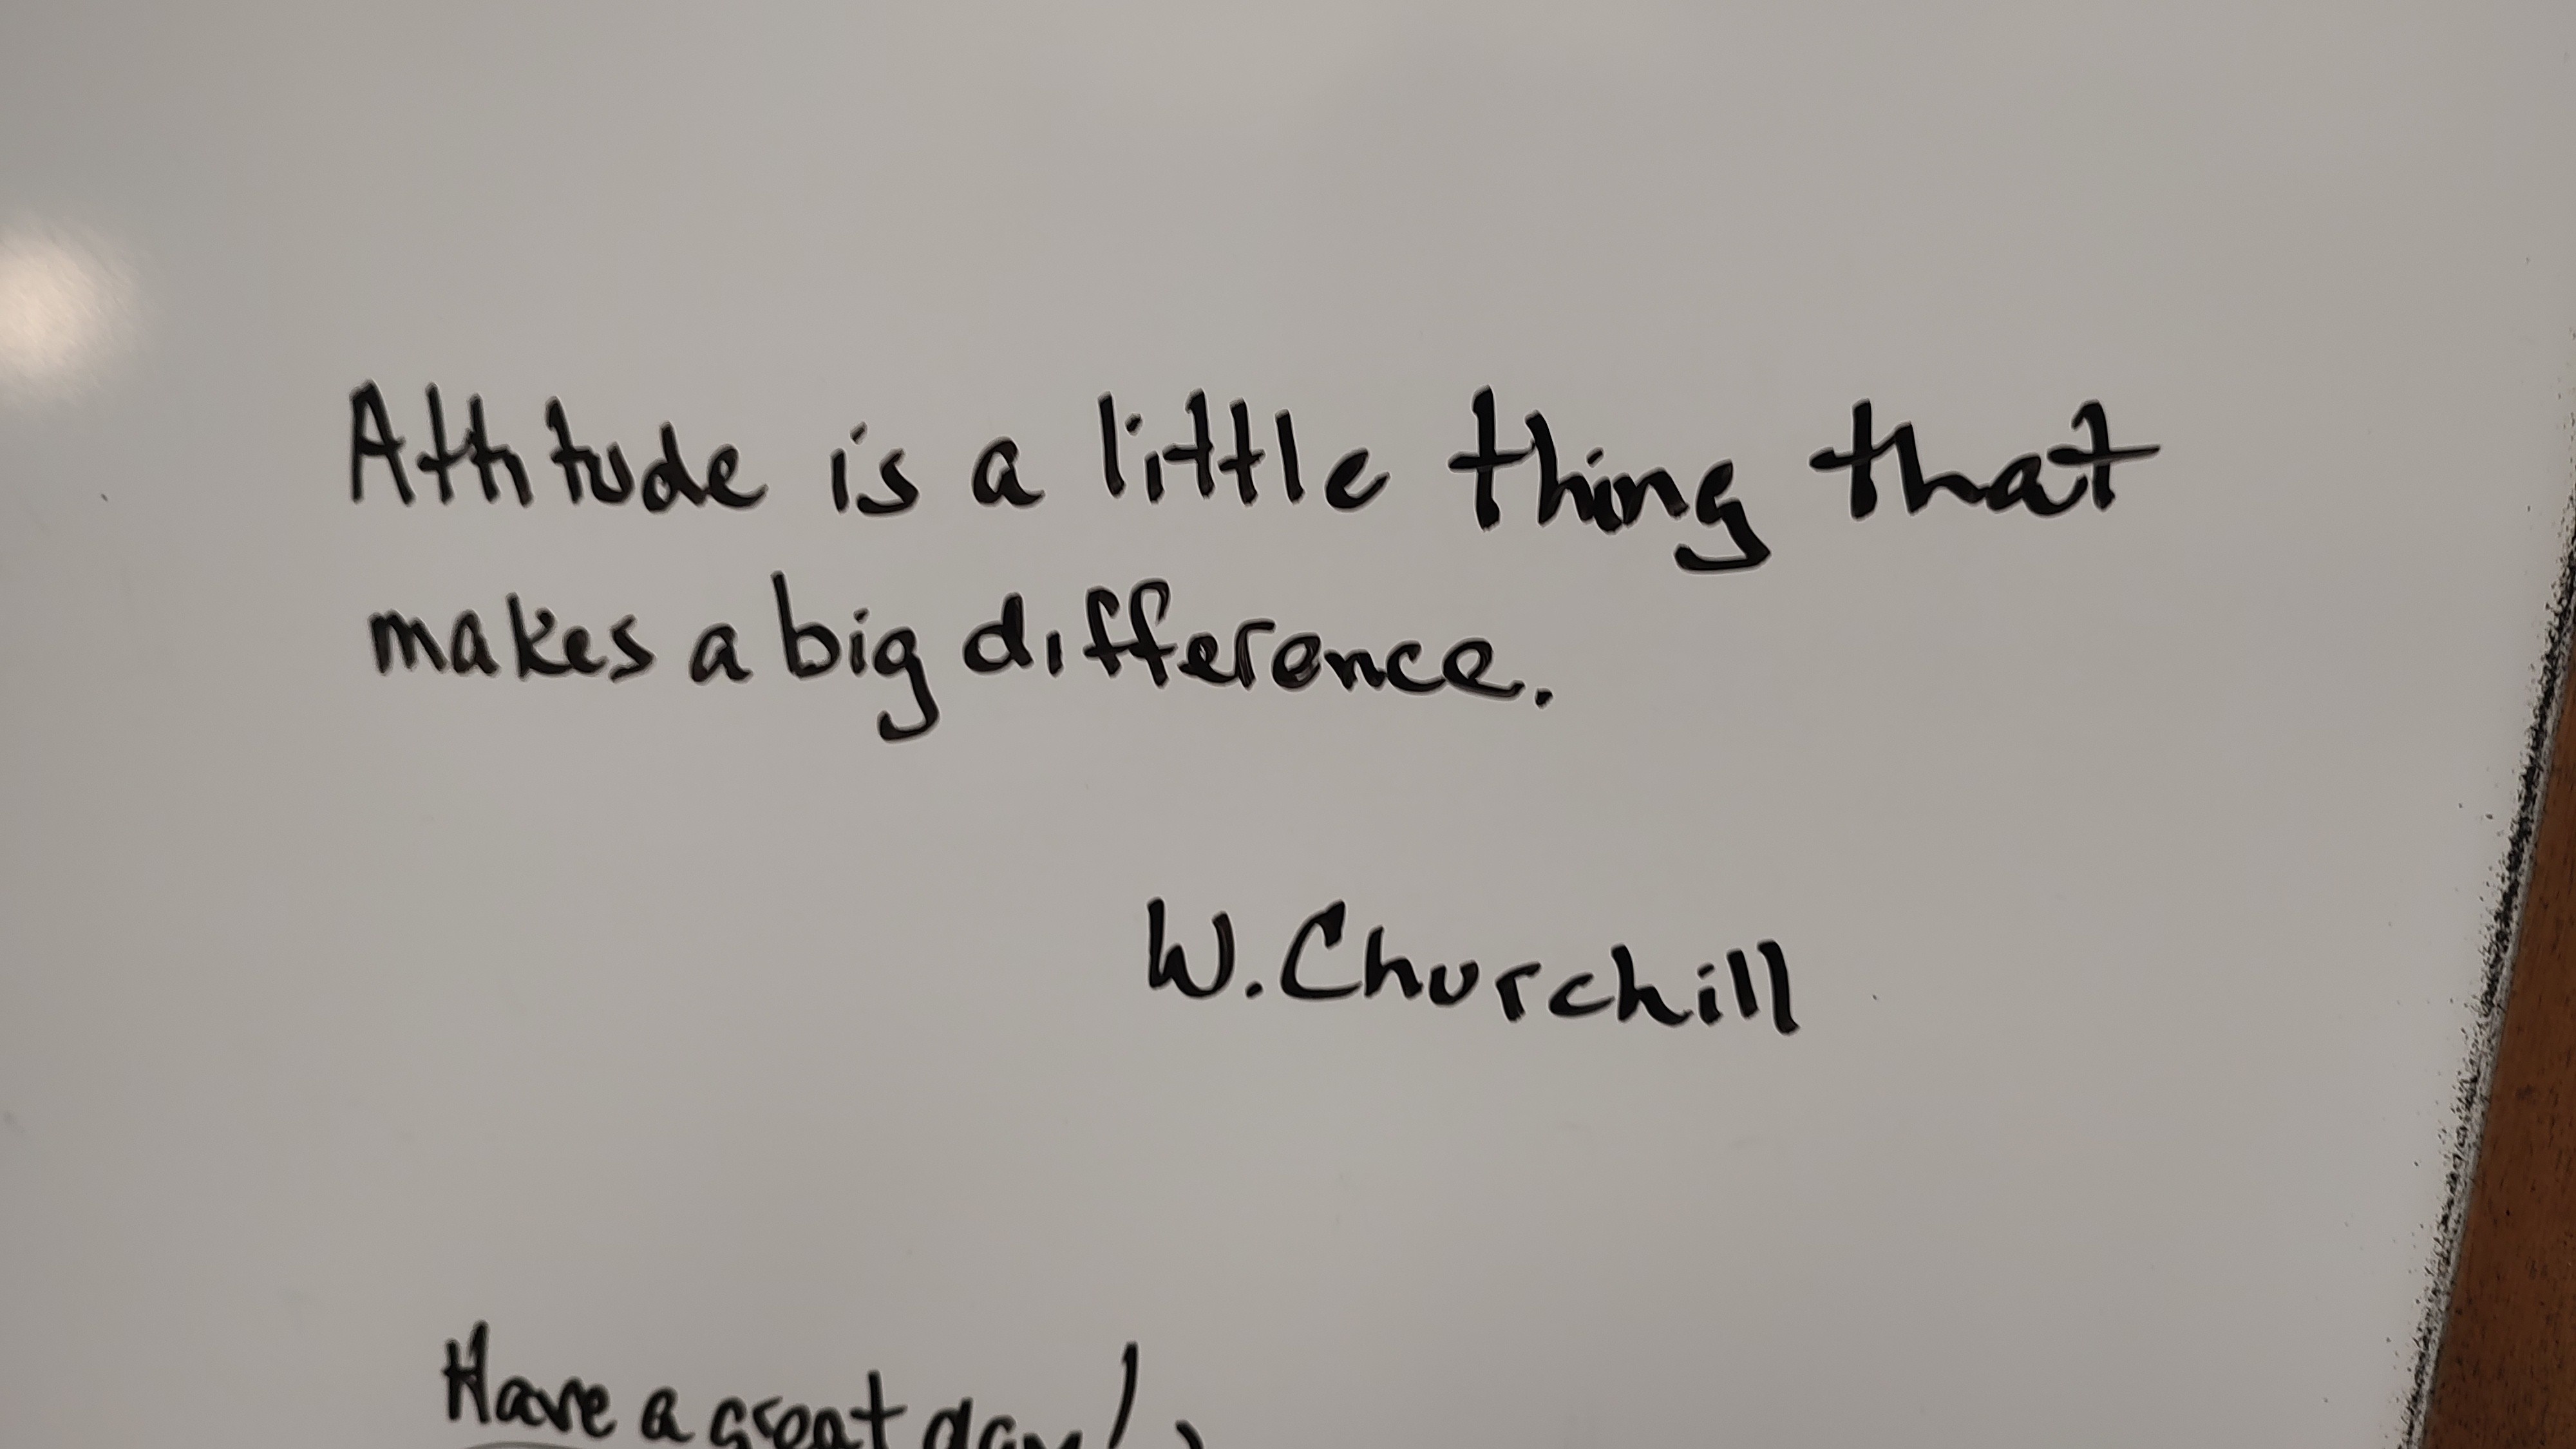 Attitude is a little thing that
makes a big difference.
W. Churchill
Have a great day!